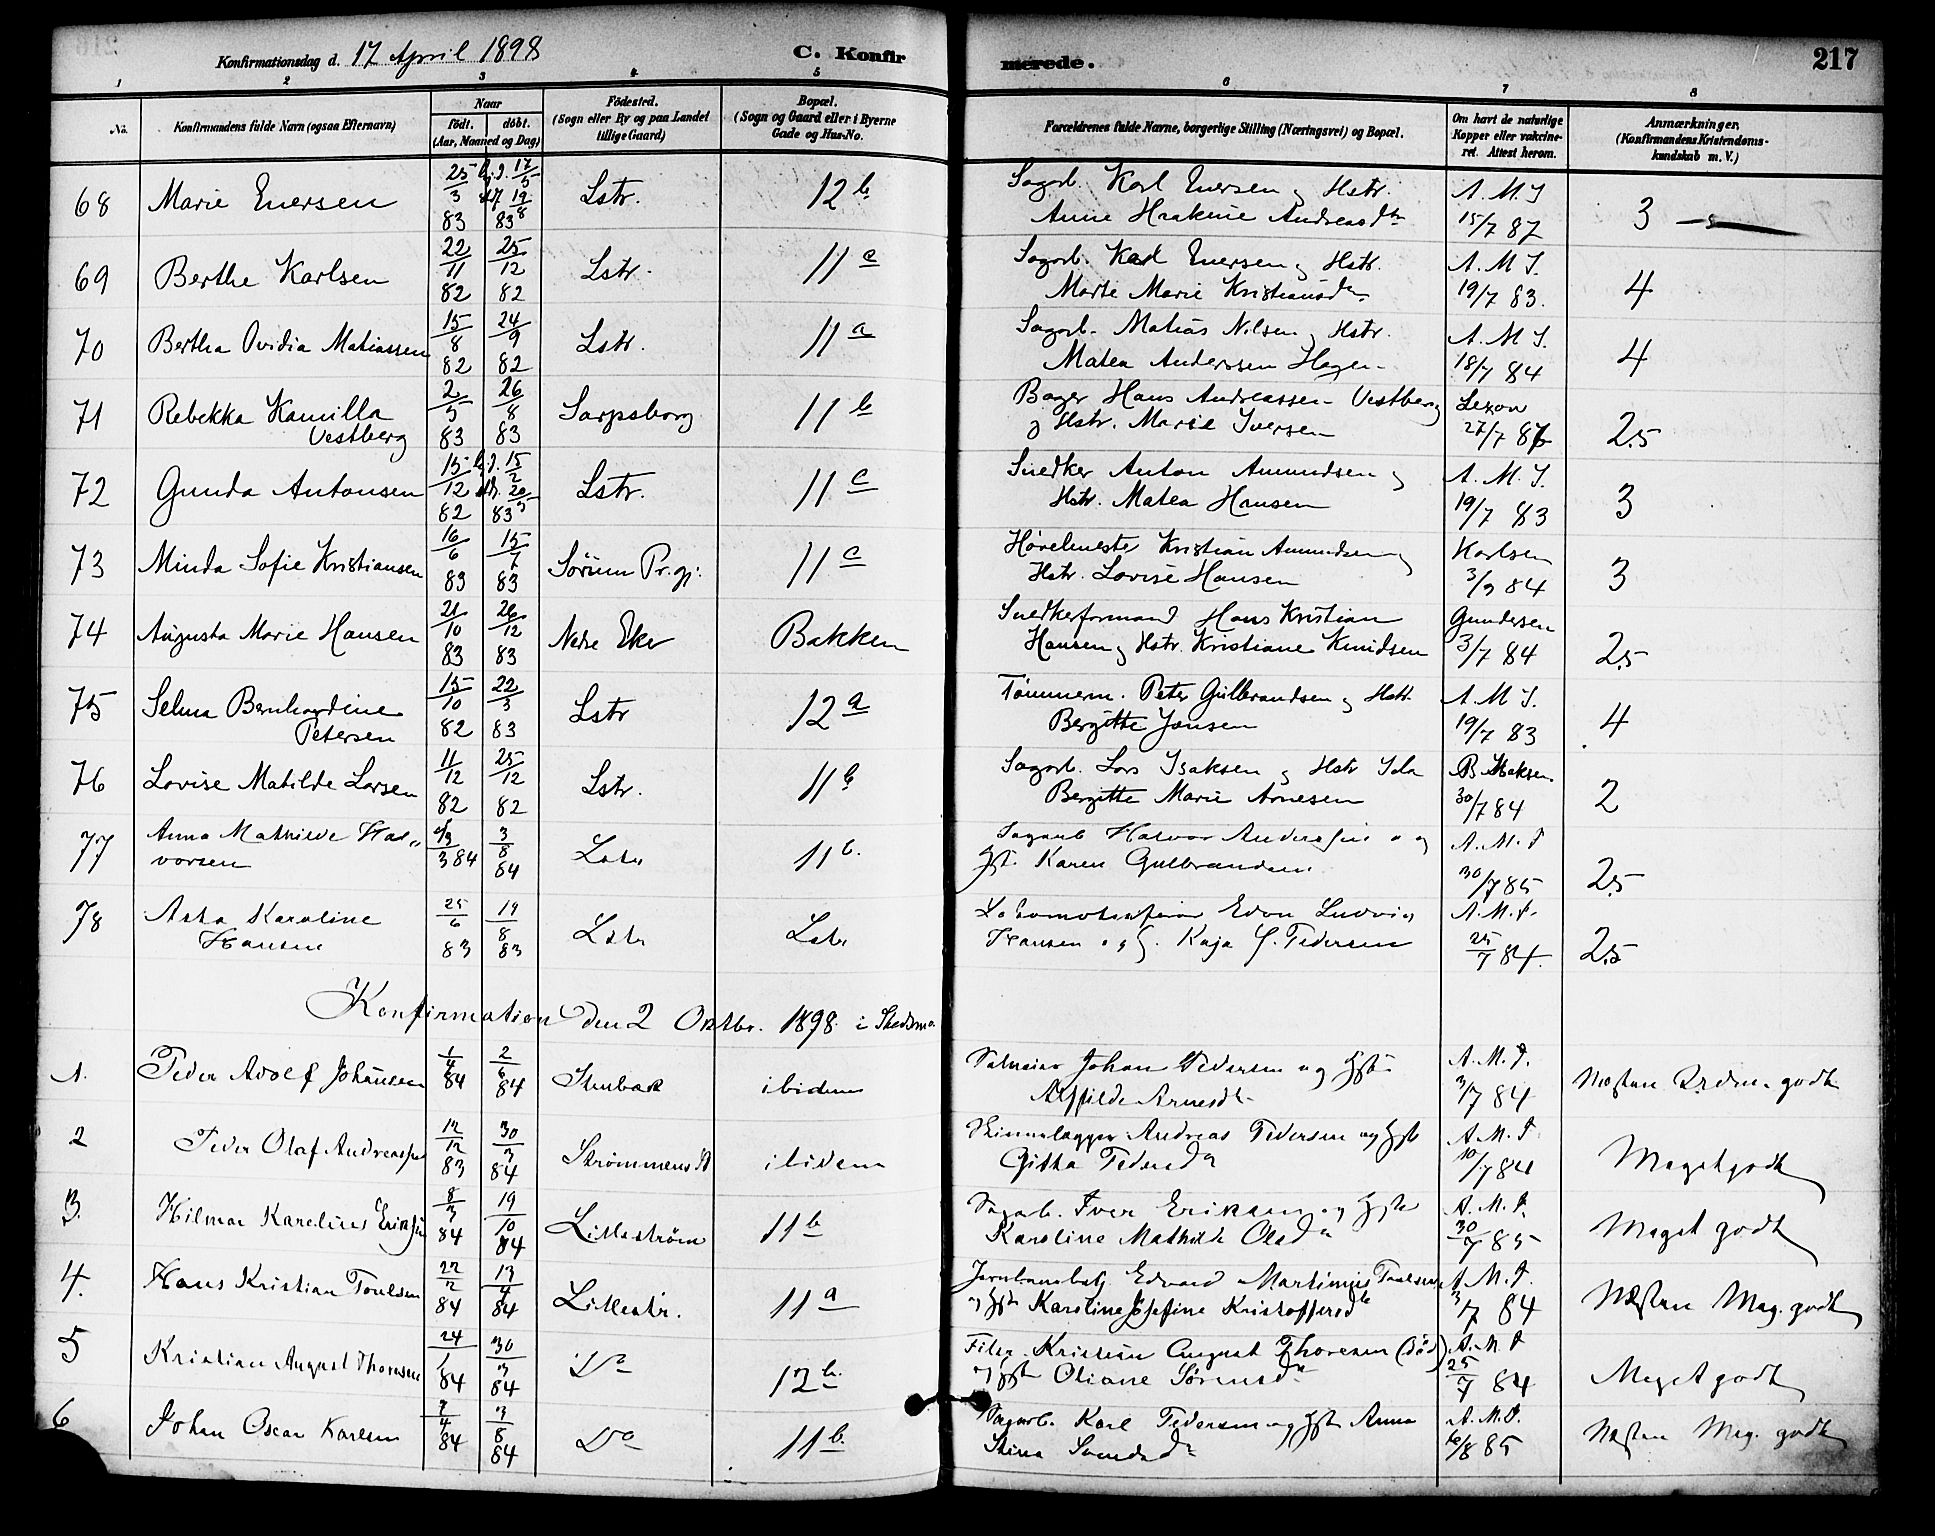 Konfirmationsdag d. 17 April 1898 C. Konfirmerede. 217
1 2 3 4 5 6 7 8
No. Konfirmandens fulde Navn (ogsaa Efternavn) Naar födt. döbt. (Aar, Maaned og Dag) Födested. (Sogn eller By og paa Landet tillige Gaard) Bopæl. (Sogn og Gaard eller i Byerne Gade og Hus-No. Forældrenes fulde Navne, borgerlige Stilling (Næringsvei) og Bopæl. Om havt de naturlige Kopper eller vakcineret. Attest herom. Anmærkninger, (Konfirmandens Kristendomskundskab m. V.)
68 Marie Enersen 25/3 83 17/5 19/8 83 Lstr. 12 b Sagarb. Karl Enersen og Hstr. A. M. J
Anne Haakine Andreasdtr 15/7 87 3
69 Berthe Karlsen 22/11 82 25/12 82 Lstr. 11 c Sagarb. Karl Enersen og Hstr. A. M. J.
Marte Marie Kristiansdtr 19/7 83. 4
70 Bertha Ovidia Matiassen 15/8 82 24/9 82 Lstr. 11 a Sagarb. Matias Nilsen og Hstr. A. M. J.
Matea Anderssen Hagen 18/7 84 4
71 Rebekka Kamilla Vestberg 2/5 83 26/8 83 Sarpsborg 11 b Bager Hans Andreassen Vestberg
og Hstr. Marie Iversen 27/7 2.5
72 Gunda Antonsen 15/12 82 15/2 83 Lstr. 11 c Snedker Anton Amundsen og A. M. J.
Hstr. Matea Hansen 19/7 83 3
73 Minda Sofie Kristiansen 16/6 83 15/7 83 Sörum Pr.gj. 11 c Hövelmester Kristian Amundsen og Karlsen
Hstr. Lovise Hansen 3/9 84 3
74 Augusta Marie Hansen 21/10 83 26/12 83 Nedre Eker Bakken Snedkerformand Hans Kristian Gundersen
Hansen og Hstr. Kristiane Knudsen 3/7 84 2.5
75 Selma Bernhardine Petersen 15/10 82 22/3 83 Lstr 12 a Tömmerm. Peter Gulbrandsen og Hstr. A. M. J.
Bergitte Jansen 19/7 83 4
76 Lovise Matilde Larsen 11/12 82 25/12 82 Lstr. 11 b Sagarb. Lars Isaksen og Hstr Ida
Bergitte Marie Arnesen 30/7 84 2
77 Anna Mathilde Halvorsen 3 84 3/8 84 Lstr 11 b. Sagarb Halvor Anderssen og A. M. J
Hst. Karen Gulbrandsen 30/7 85 2.5
78 Asta Karoline Hansen 25/6 83 19/8 83 Lstr Lstr Edvu Ludvig A. M. J.
Hansen og H. Kaja J. Pedersen 25/7 84. 2.5
Konfirmation den 2 Oktbr. 1898 i Skedsmo
1. Peder Adolf Johansen 1/4 84 2/6 84 Stenbak ibidem Johan Pedersen og Hst. A. M. J.
Alfhilde Arnesdtr 3/7 84 Næsten godt
2 Peder Olaf Andreassen 12/12 83 30/3 84 Strømmens St ibidem Skinnelægger Andreas Pedersen og Hst A. M. J.
Githa Pedersdtr 10/7 84 Meget godt
3. Hilmar Karelius Eriksen 8/3 84 19/10 84 Lilleström 11 b Sagarb. Iver Eriksen og Hst A. M. J.
Karoline Mathilde Olsdtr 30/7 85 Meget godt
4. Hans Kristian Poulsen 22/2 84 13/4 84 Lillestr. 11 a Edvard Martinius Poulsen A. M. J.
og Hst Karoline Josefine Kristoffersdtr 3/7 84 Næsten Meg. godt
5 Kristian August Thoresen 24/1 84 30/3 84 Do 12 b. Filer Kristian August Thoresen (död) A. M. J
og Hst Oliane Sörensdtr 25/7 84 Meget godt
6 Johan Oscar Karlsen 7/4 84 3/8 84 Do 11 b. Sagarb. Karl Pedersen og Hst Anna A. M. J.
Stina Svendsdtr 6/8 85 Næsten Meg. godt